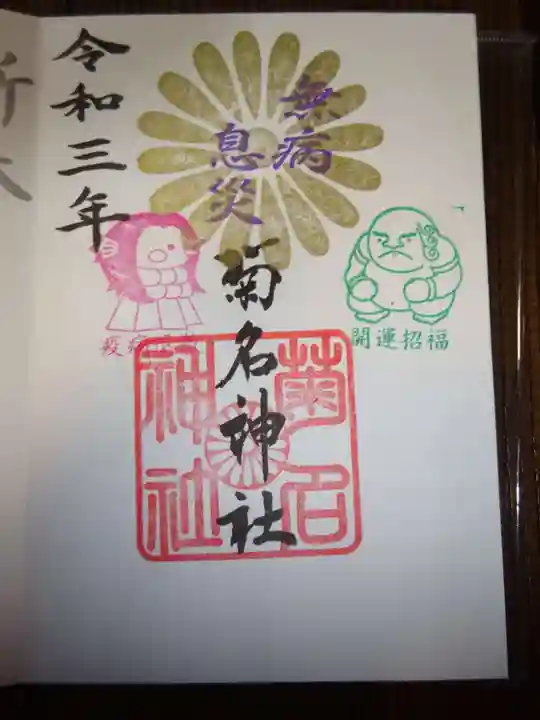 無病
息災
令和三年
菊名神社
疫病
開運招福
菊名
神社